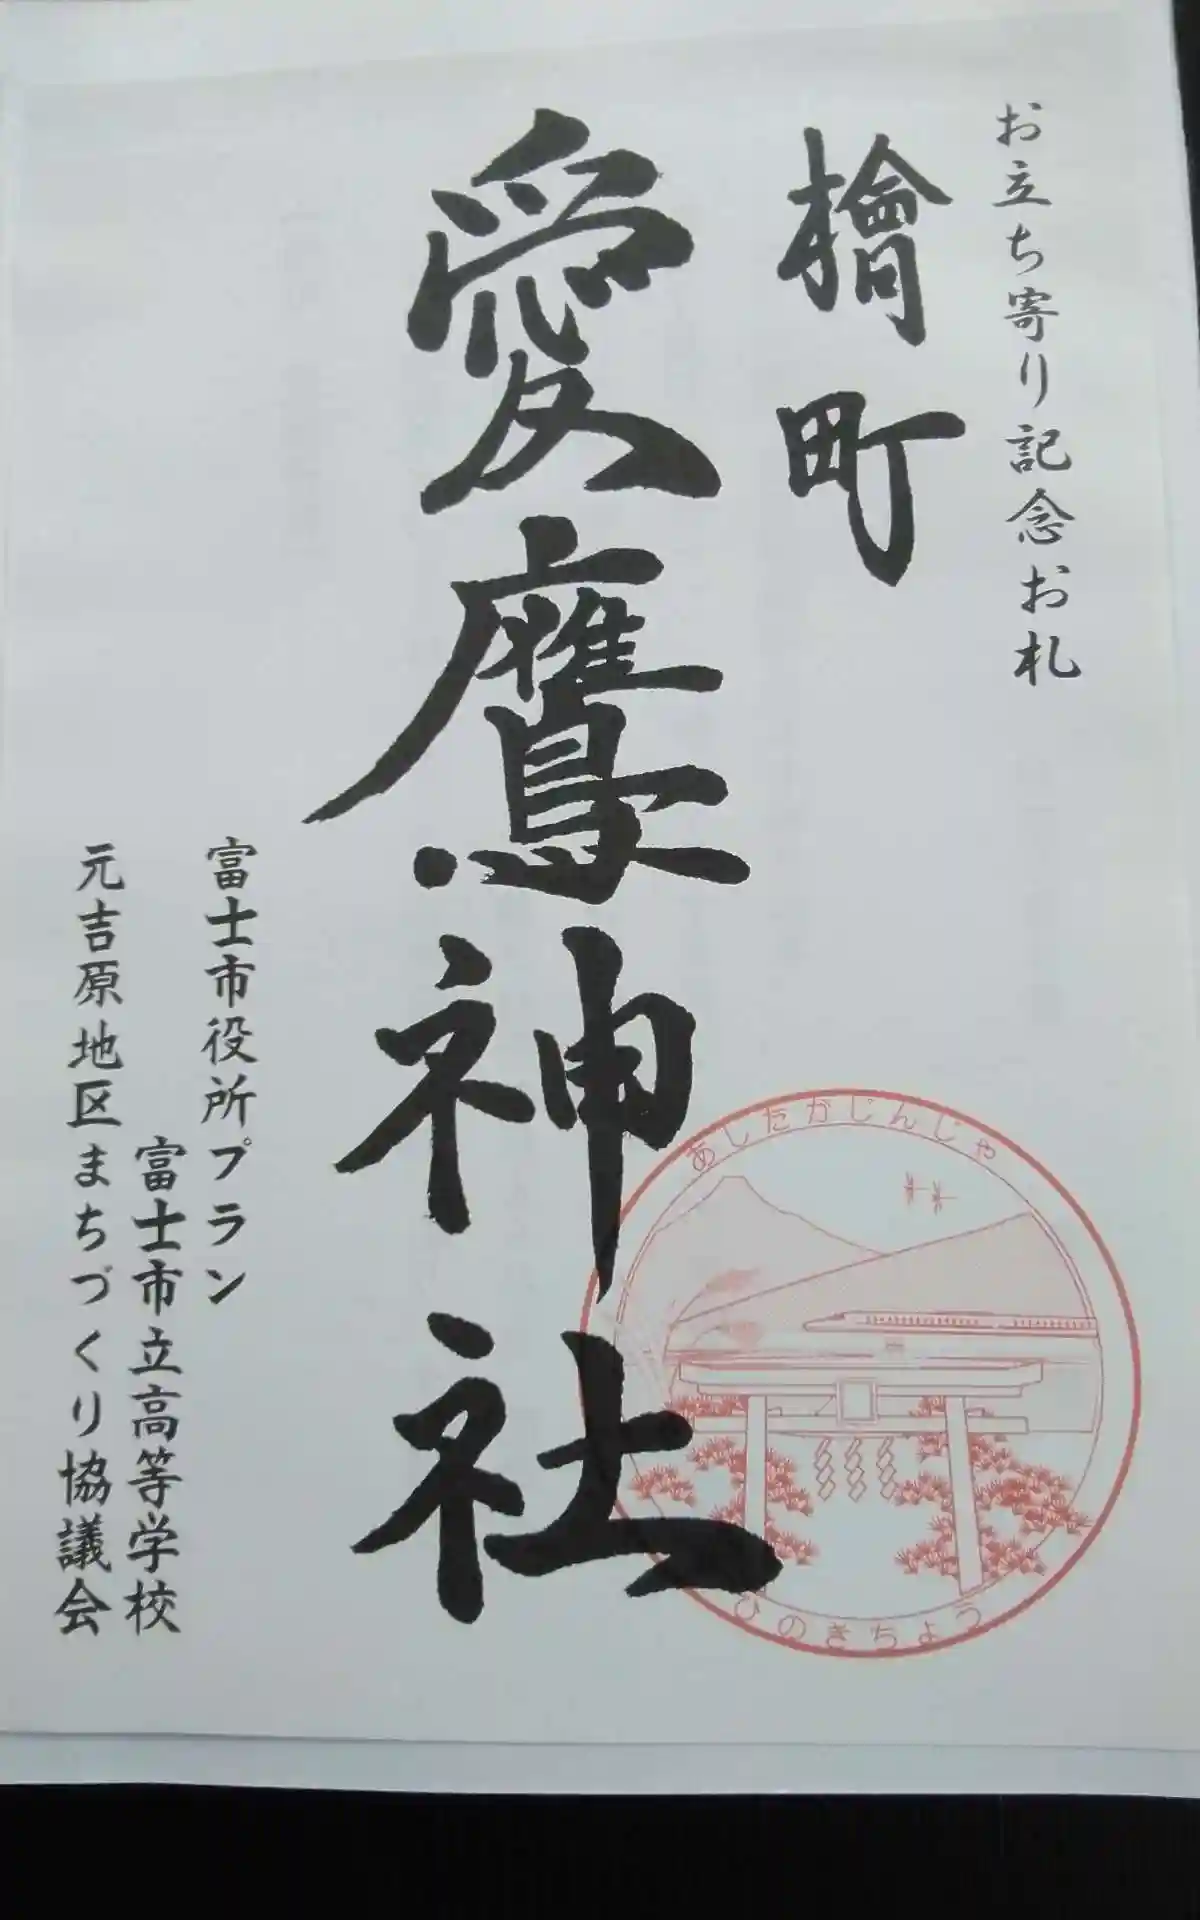 お立ち寄り記念お札
檜町
愛鷹神社
あしたかじんじゃ
ひのきちょう
富士市役所プラン
富士市立高等学校
元吉原地区まちづくり協議会